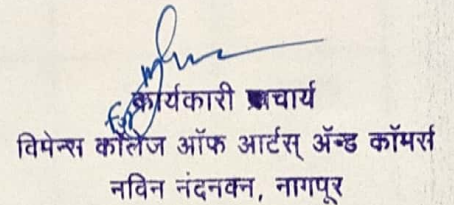 कार्यकारी प्राचार्य
विमेन्स कॉलेज ऑफ आर्टस् ॲन्ड कॉमर्स
नविन नंदनवन, नागपूर